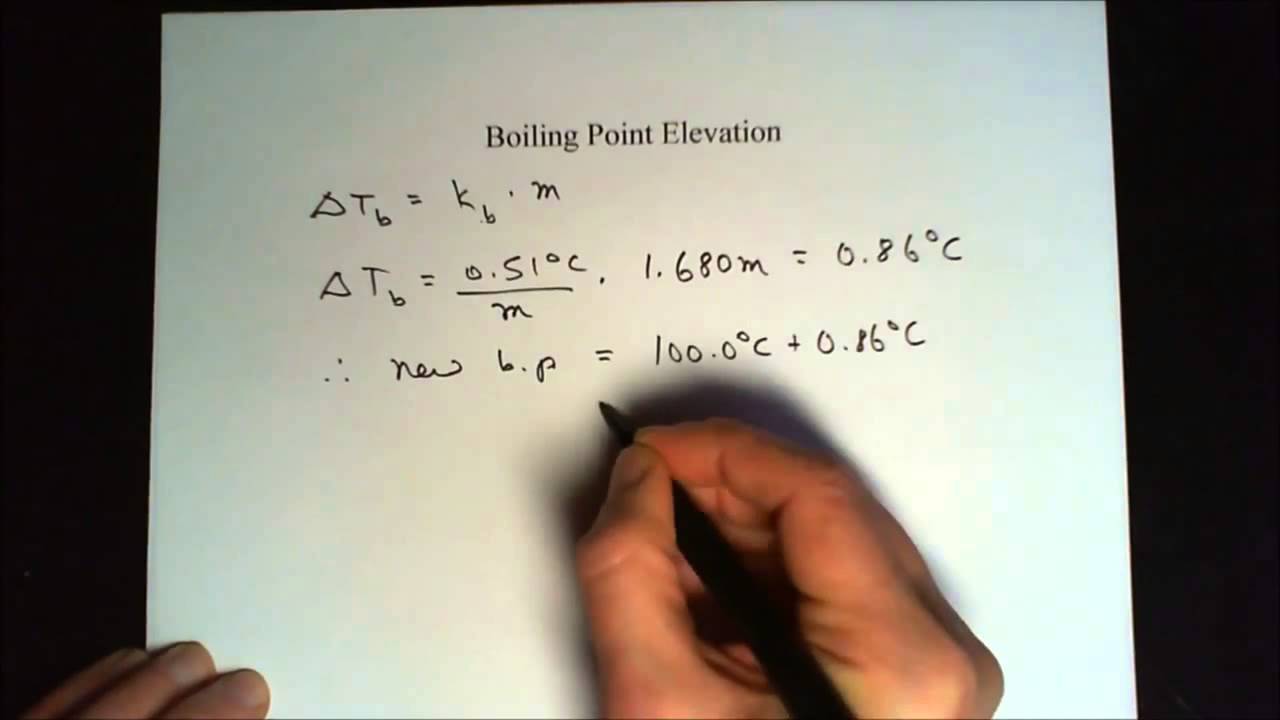 Boiling Point Elevation
ΔT_b = K_b · m
ΔT_b = 0.51°C/m · 1.680m = 0.86°C
∴ new b.p = 100.0°C + 0.86°C